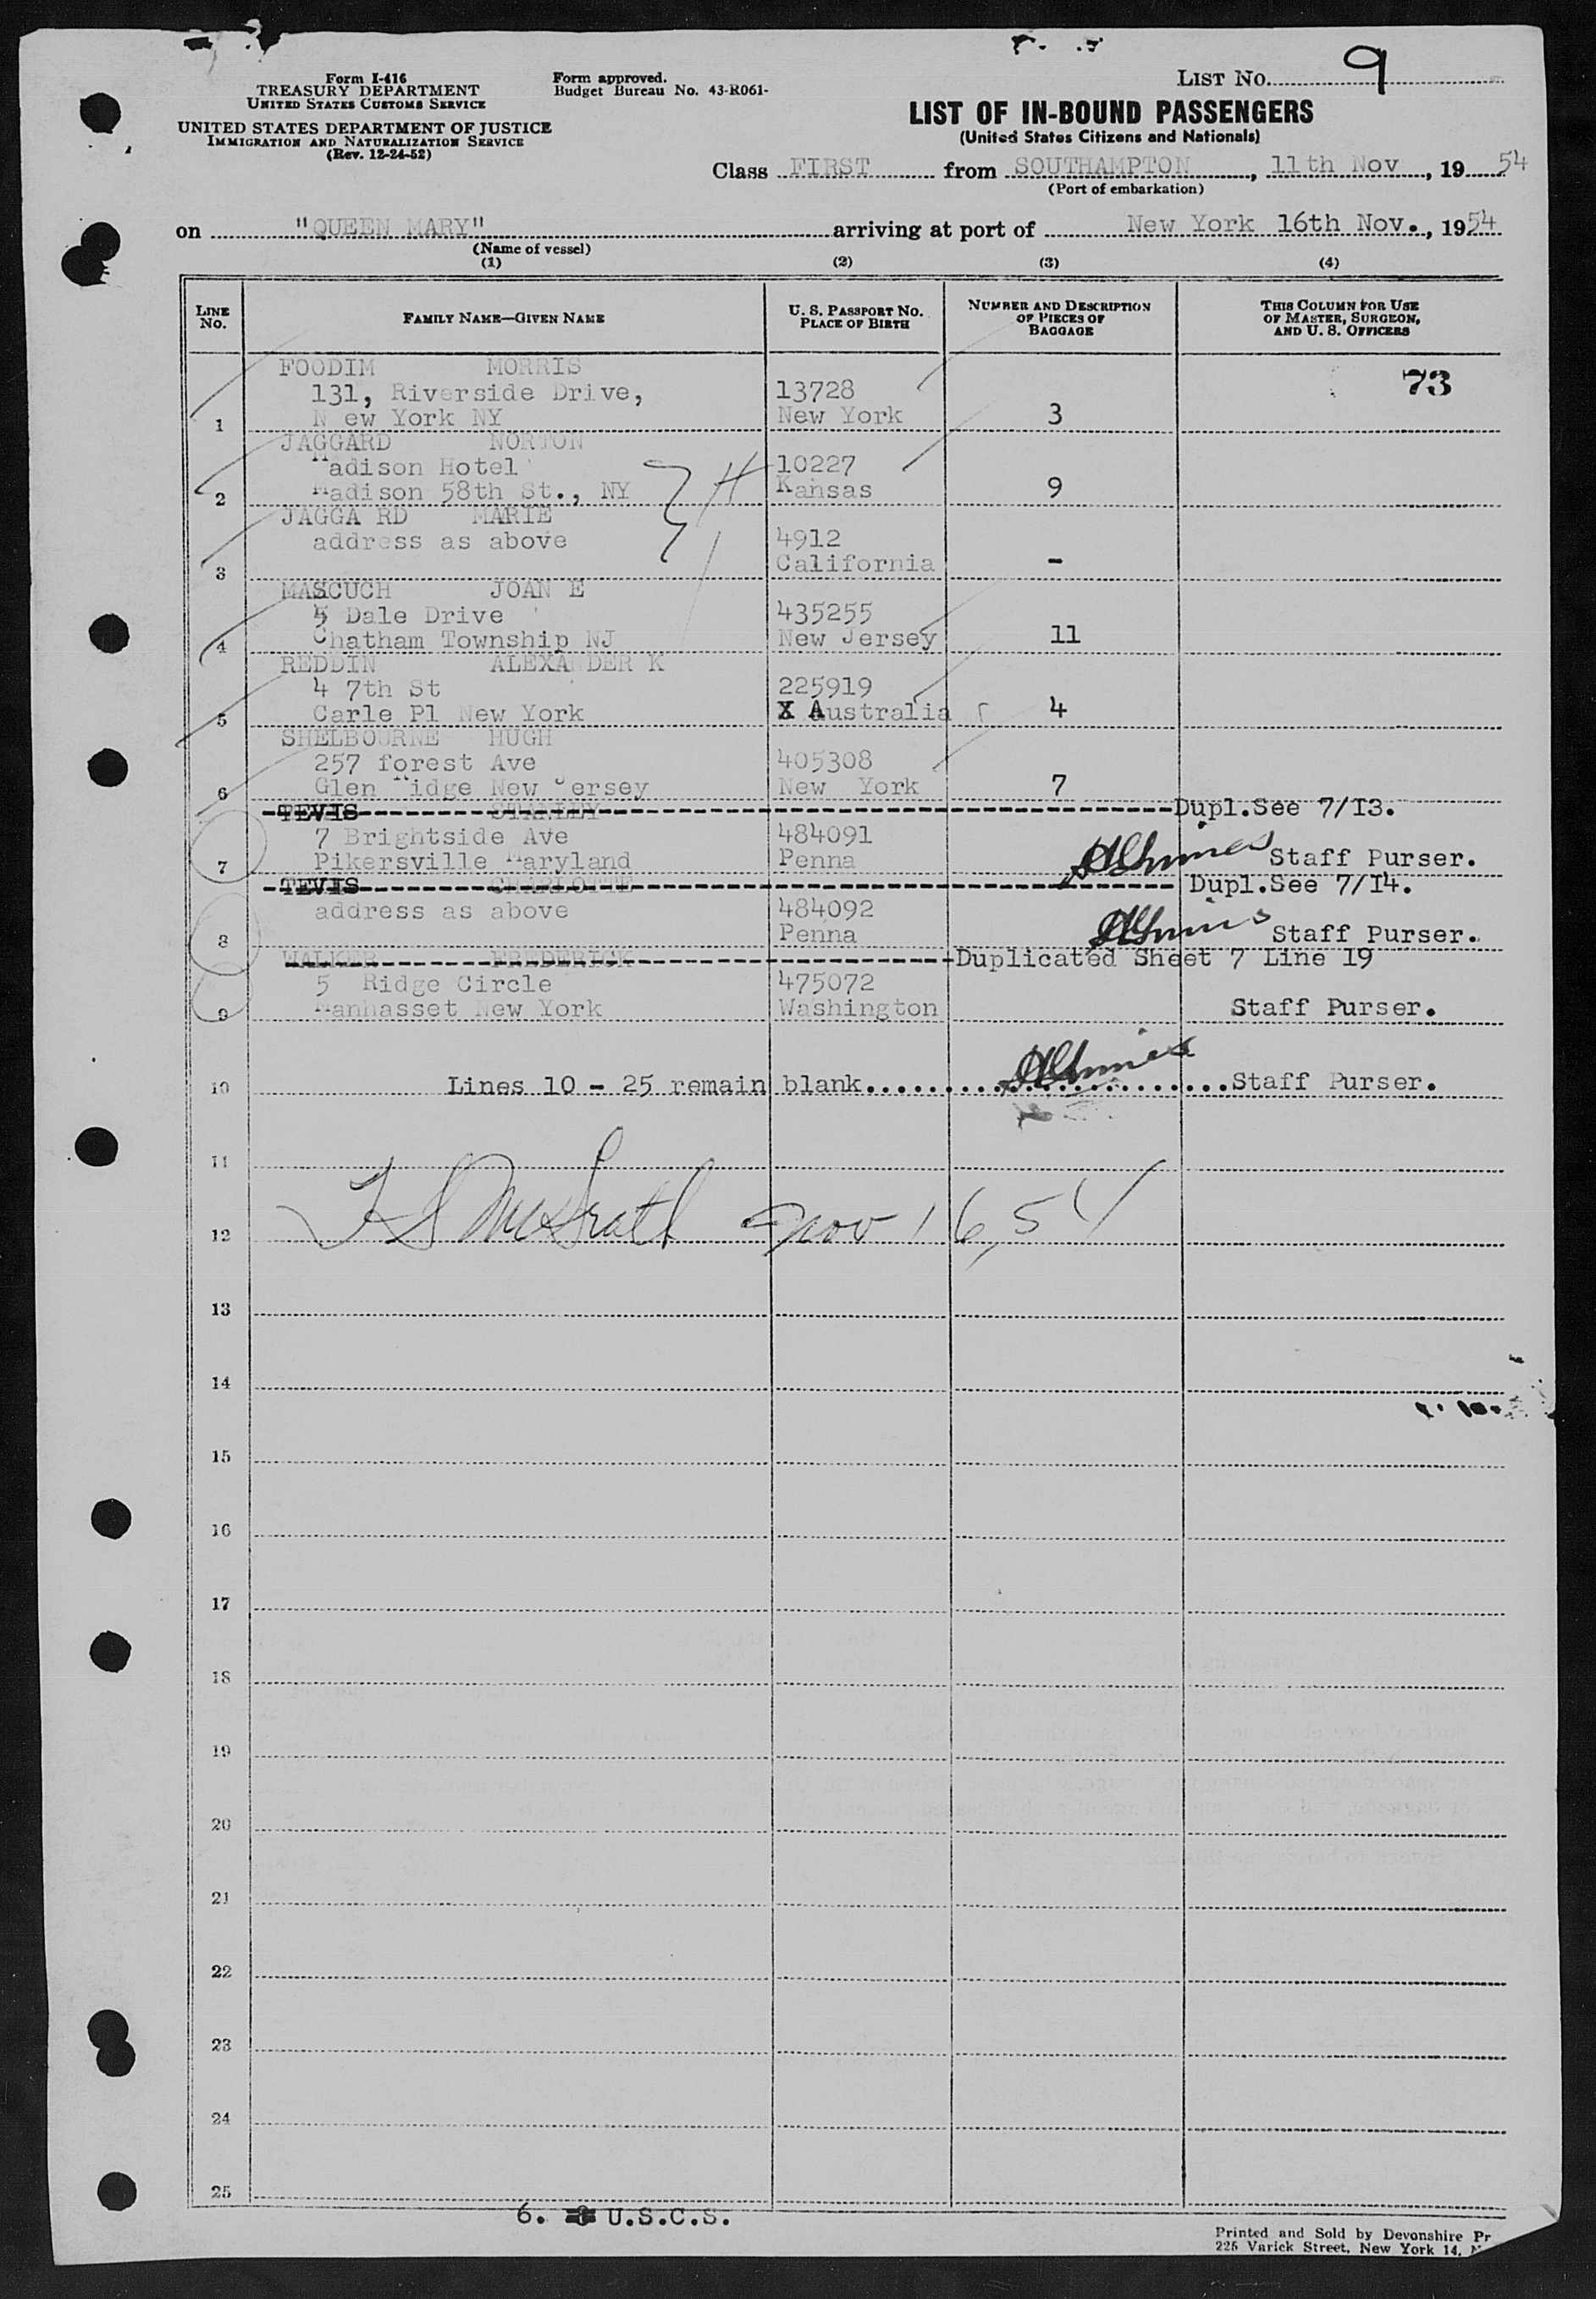 Form I-416
TREASURY DEPARTMENT
UNITED STATES CUSTOMS SERVICE
UNITED STATES DEPARTMENT OF JUSTICE
IMMIGRATION AND NATURALIZATION SERVICE
(Rev. 12-24-52)
Form approved.
Budget Bureau No. 43-R061-
LIST No. 9
LIST OF IN-BOUND PASSENGERS
(United States Citizens and Nationals)
Class FIRST from SOUTHAMPTON, 11th Nov, 19 54
(Port of embarkation)
on "QUEEN MARY" arriving at port of New York 16th Nov., 1954
(Name of vessel)
(1) (2) (3) (4)
LINE No. FAMILY NAME—GIVEN NAME U. S. PASSPORT NO. PLACE OF BIRTH NUMBER AND DESCRIPTION OF PIECES OF BAGGAGE THIS COLUMN FOR USE OF MASTER, SURGEON, AND U. S. OFFICERS
FOODIM MORRIS
131, Riverside Drive, 13728 73
1 N ew York NY New York 3
JAGGARD NORTON
Madison Hotel 10227
2 Madison 58th St., NY Kansas 9
JAGGA RD MARIE
address as above 4912
3 California -
MASCUCH JOAN E
5 Dale Drive 435255
4 Chatham Township NJ New Jersey 11
REDDIN ALEXANDER K
4 7th St 225919
5 Carle Pl New York X Australia 4
SHELBOURNE HUGH
257 forest Ave 405308
6 Glen Ridge New Jersey New York 7
TEVIS STANLEY Dupl.See 7/I3.
7 Brightside Ave 484091
7 Pikersville Maryland Penna Staff Purser.
TEVIS CHARLOTTE Dupl.See 7/I4.
address as above 484092
8 Penna Staff Purser.
WALKER FREDERICK Duplicated Sheet 7 Line 19
5 Ridge Circle 475072
9 Manhasset New York Washington Staff Purser.
10 Lines 10 - 25 remain blank..............................Staff Purser.
11
12 McGrath Nov 16, 54
13
14
15
16
17
18
19
20
21
22
23
24
25
6. U.S.C.S.
Printed and Sold by Devonshire Pr
225 Varick Street, New York 14, N